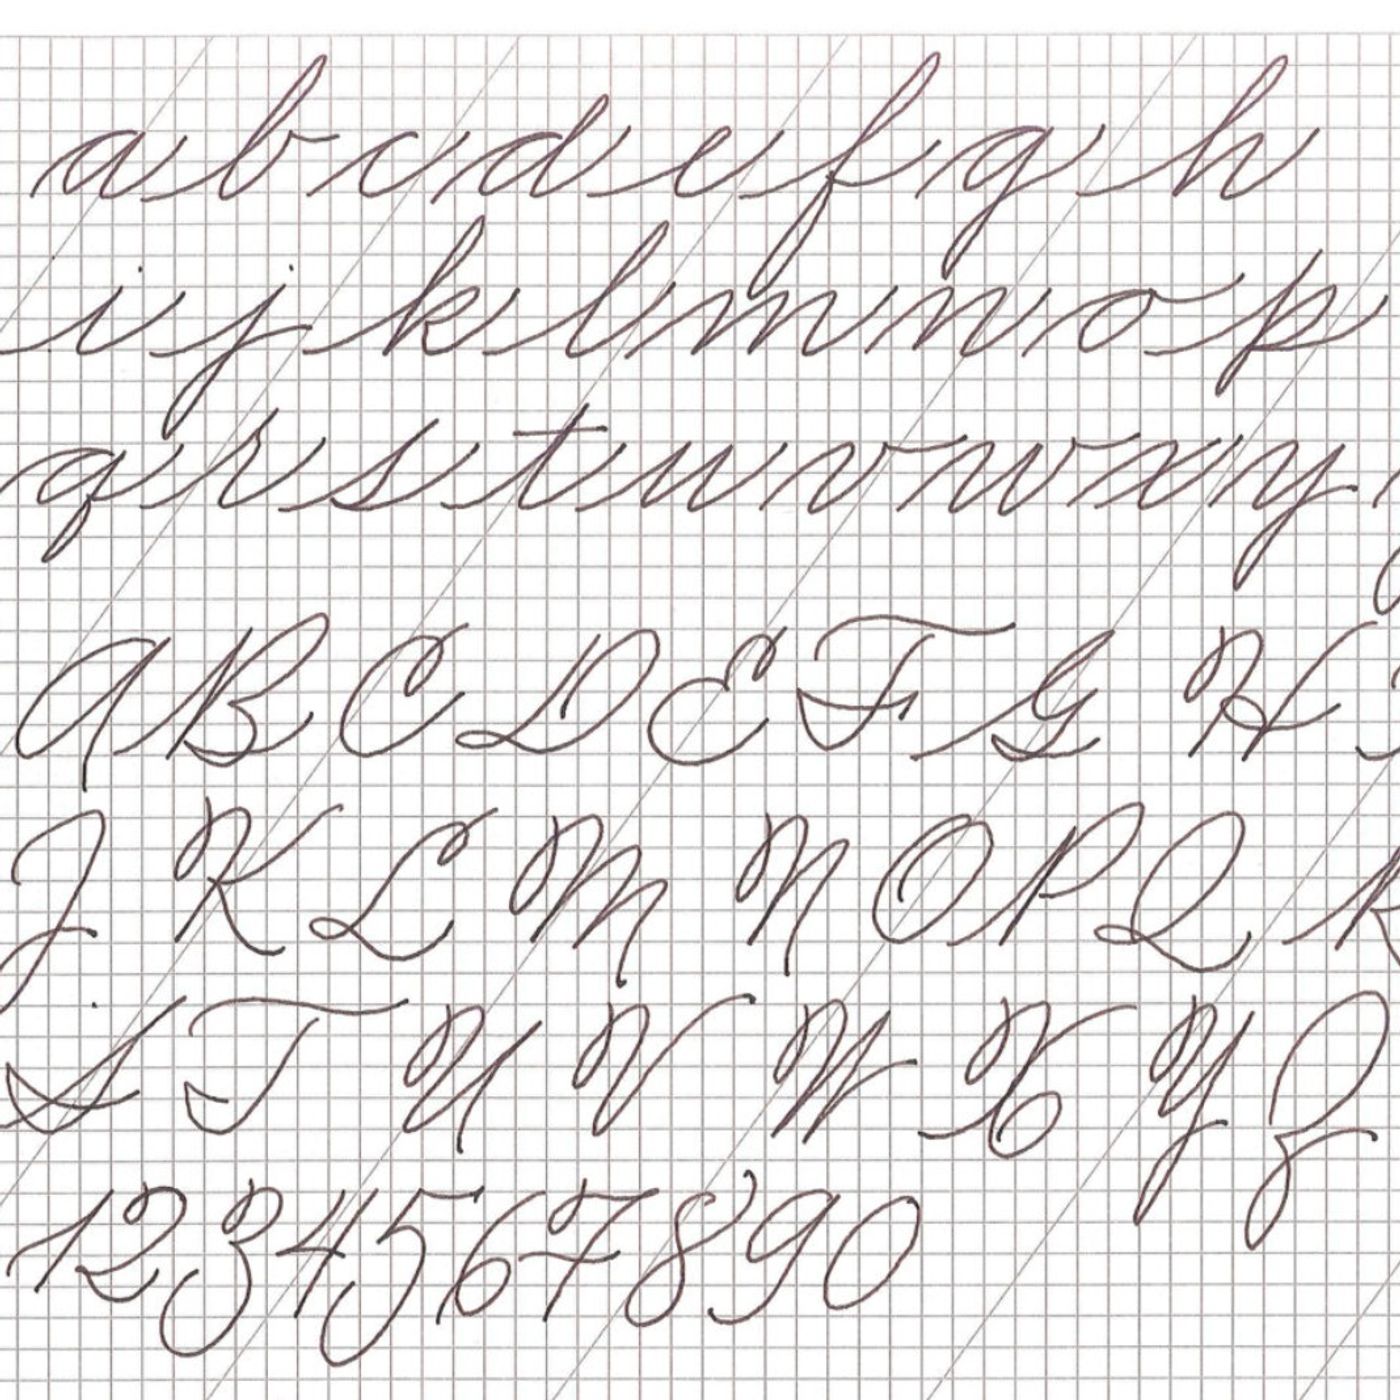 a b c d e f g h
i j k l m n o p
q r s t u v w x y
A B C D E F G H
J K L M N O P Q R
S T U V W X Y Z
1 2 3 4 5 6 7 8 9 0